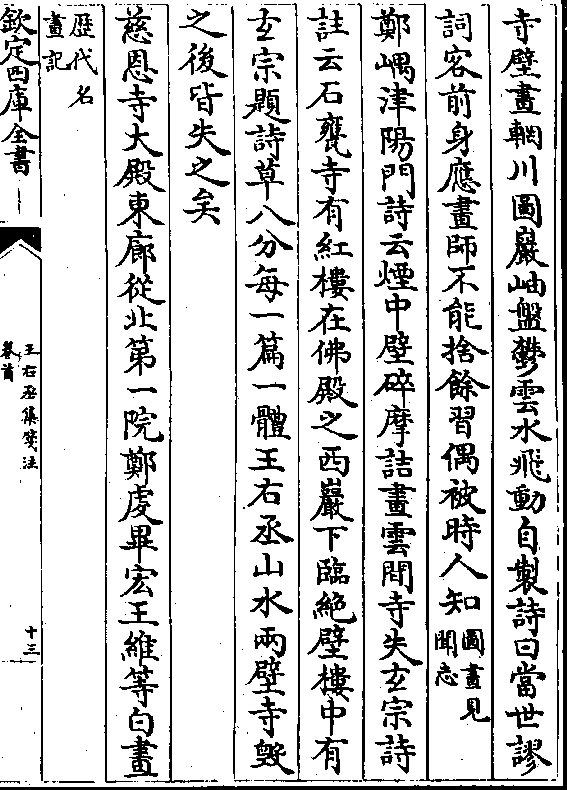 寺壁畫輞川圖巖岫盤鬱雲水飛動自製詩曰當世謬
詞客前身應畫師不能捨餘習偶被時人知圖畫見聞志
鄭嵎津陽門詩云煙中壁碎摩詰畫雲間寺失玄宗詩
註云石甕寺有紅樓在佛殿之西巖下臨絶壁樓中有
玄宗題詩草八分每一篇一體王右丞山水兩壁寺毀
之後皆失之矣
慈恩寺大殿東廊從北第一院鄭虔畢宏王維等白畫
歷代名畫記
欽定四庫全書
王右丞集箋注
卷首
十三